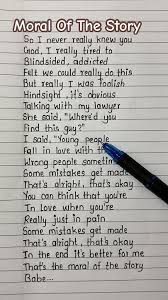 Moral Of The Story
So I never really knew you
God, I really tired to
Blindsided, addicted
Felt we could really do this
But really I was foolish
Hindsight, it's obvious
Talking with my lawyer
She said, "Where'd you
Find this guy?"
I said, "Young people
Fall in love with th
Wrong people sometim
Some mistakes get made
That's alright, that's okay
You can think that you're
In love when you're
Really just in pain
Some mistakes get made
That's alright, that's okay
In the end it's better for me
That's the moral of the story
Babe...